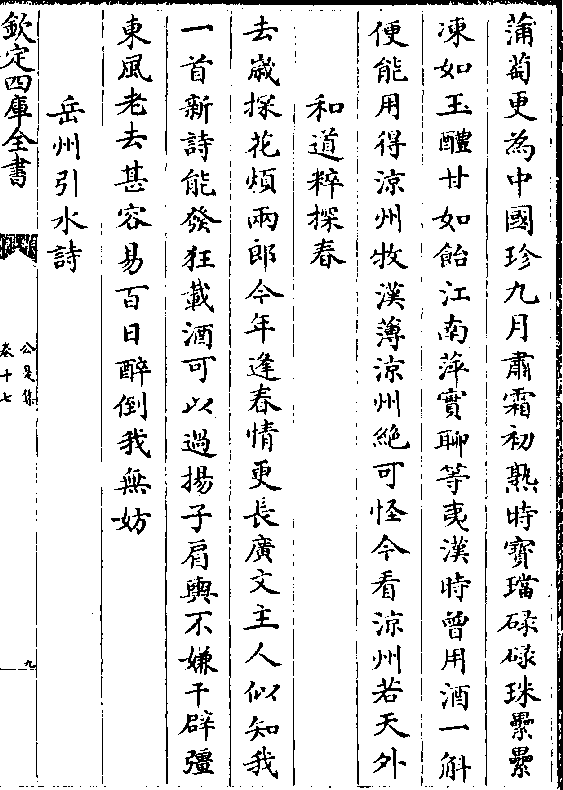 蒲萄更為中國珍九月肅霜初熟時寶璫碌碌珠纍纍
凍如玉醴甘如飴江南萍實聊等夷漢時曾用酒一斛
便能用得涼州牧漢薄涼州絶可怪今看涼州若天外
和道粹探春
去嵗探花煩兩郎今年逢春情更長廣文主人似知我
一首新詩能發狂載酒可以過揚子肩輿不嫌干辟彊
東風老去甚容易百日醉倒我無妨
岳州引水詩
欽定四庫全書
公是集
卷十七
九